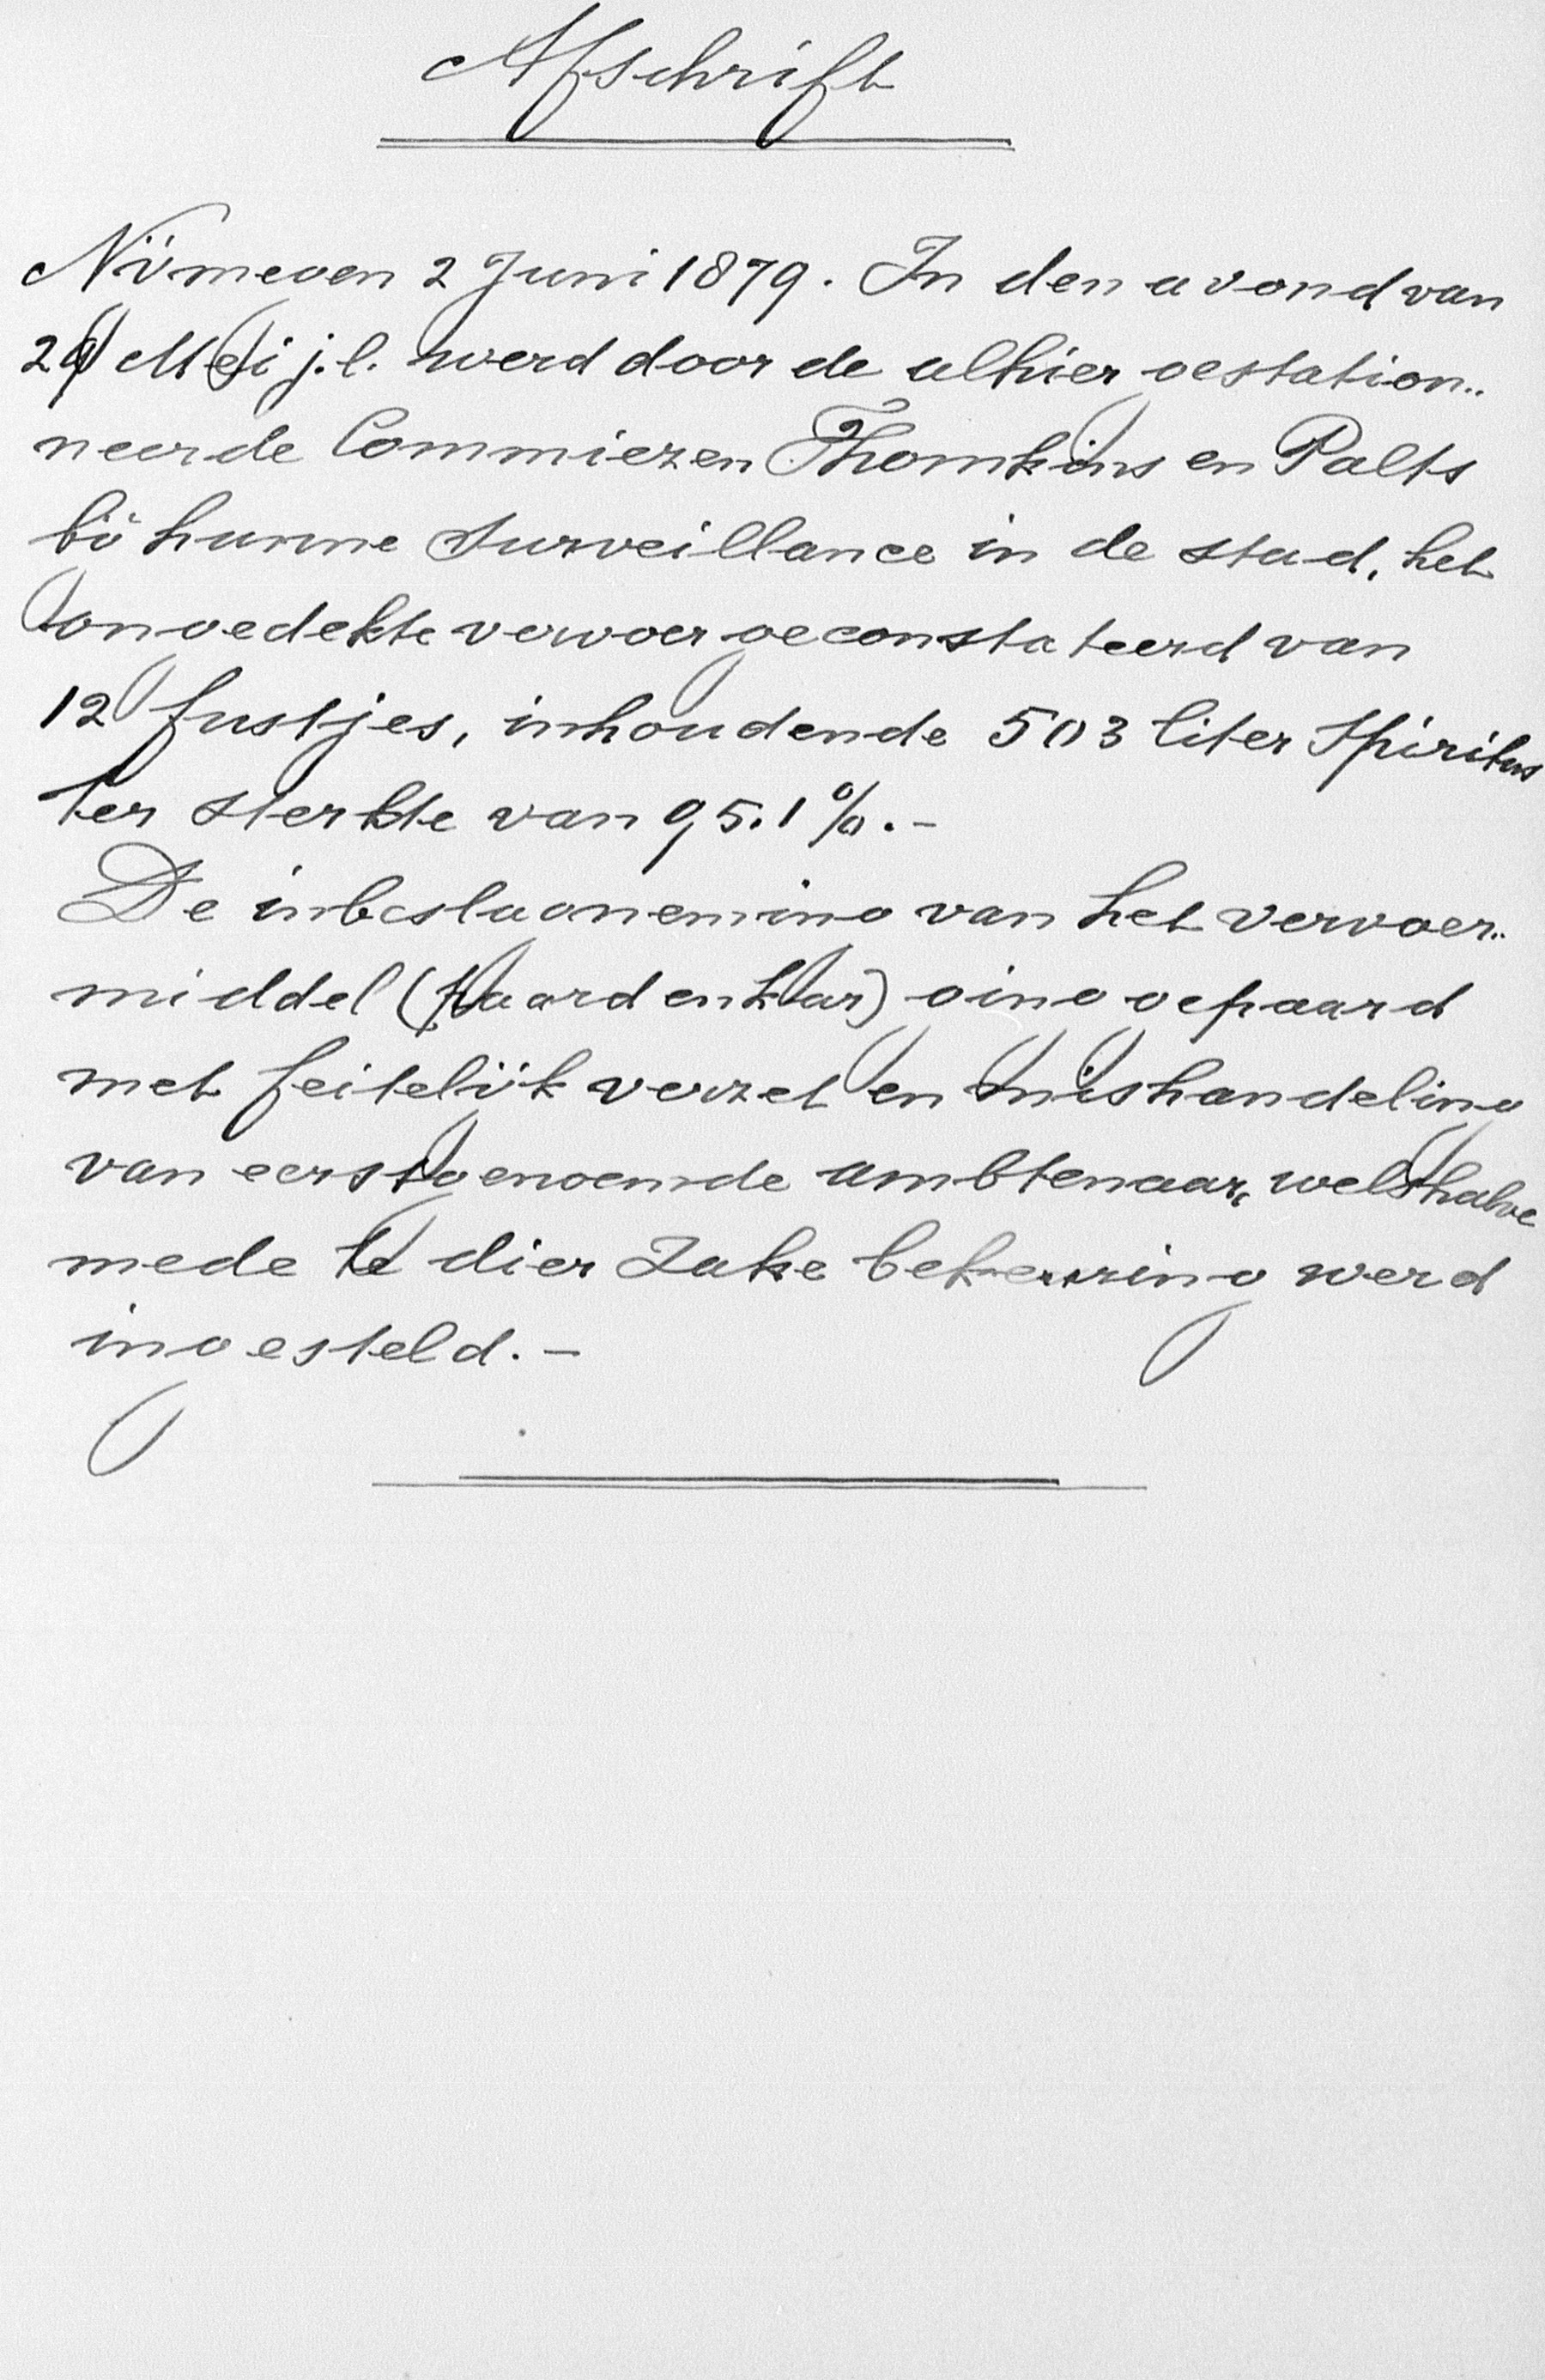 Afschrift
Nijmegen 2 Juni 1879. In den avond van
29 Mei j.l. werd door de alhier gestation„
neerde Commiezen Thomkins en Palts
bij hunne Surveillance in de stad, het
ongedekte vervoer geconstateerd van
12 fustjes, inhoudende 503 liter Spiritus
ter sterkte van 95.1 %.-
De inbeslagneming van het vervoer„
middel (paard en kar) ging gepaard
met feitelijk verzet en mishandeling
van eerstgenoemde ambtenaar, weshalve
mede te dier Zake bekeuring werd
ingesteld.-